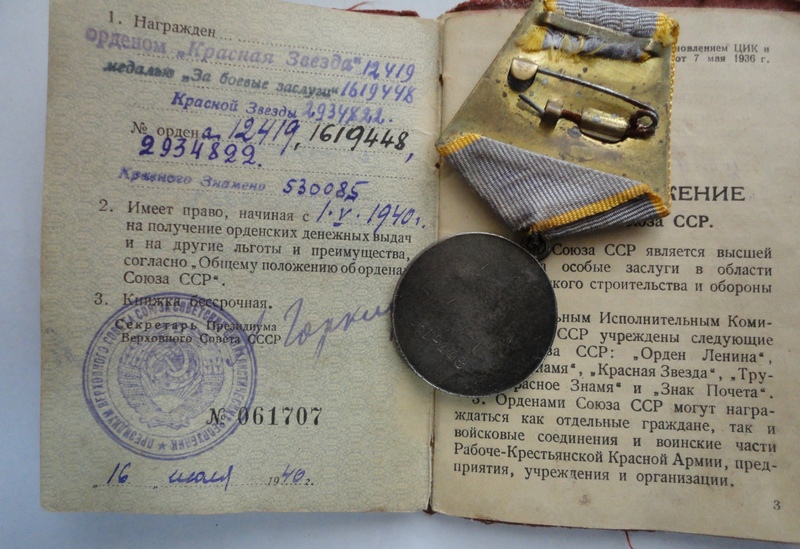 1. Награжден
орденом „Красная Звезда" 12419
медалью „За боевые заслуги" 1619448
Красной Звезды 2934822.
№ ордена 12419, 1619448,
2934822.
Красного Знамено 530085
2. Имеет право, начиная с 1.V.1940г.
на получение орденских денежных выдач
и на другие льготы и преимущества,
согласно „Общему положению об ордена
Союза ССР".
3. Книжка бессрочная.
Секретарь Президиума
Верховного Совета СССР
Горкин
ПРЕЗИДИУМ ВЕРХОВНОГО СОВЕТА СОЮЗА СОВЕТСКИХ
№ 061707
„16 июля 1940г.
новлением ЦИК и
от 7 мая 1936 г.
ЖЕНИЕ
юза ССР.
Союза ССР является высшей
особые заслуги в области
ского строительства и обороны
льным Исполнительным Коми-
ССР учреждены следующие
за ССР: „Орден Ленина",
намя", „Красная Звезда", „Тру-
расное Знамя" и „Знак Почета".
3. Орденами Союза ССР могут награ-
ждаться как отдельные граждане, так и
войсковые соединения и воинские части
Рабоче-Крестьянской Красной Армии, пред-
приятия, учреждения и организации.
3